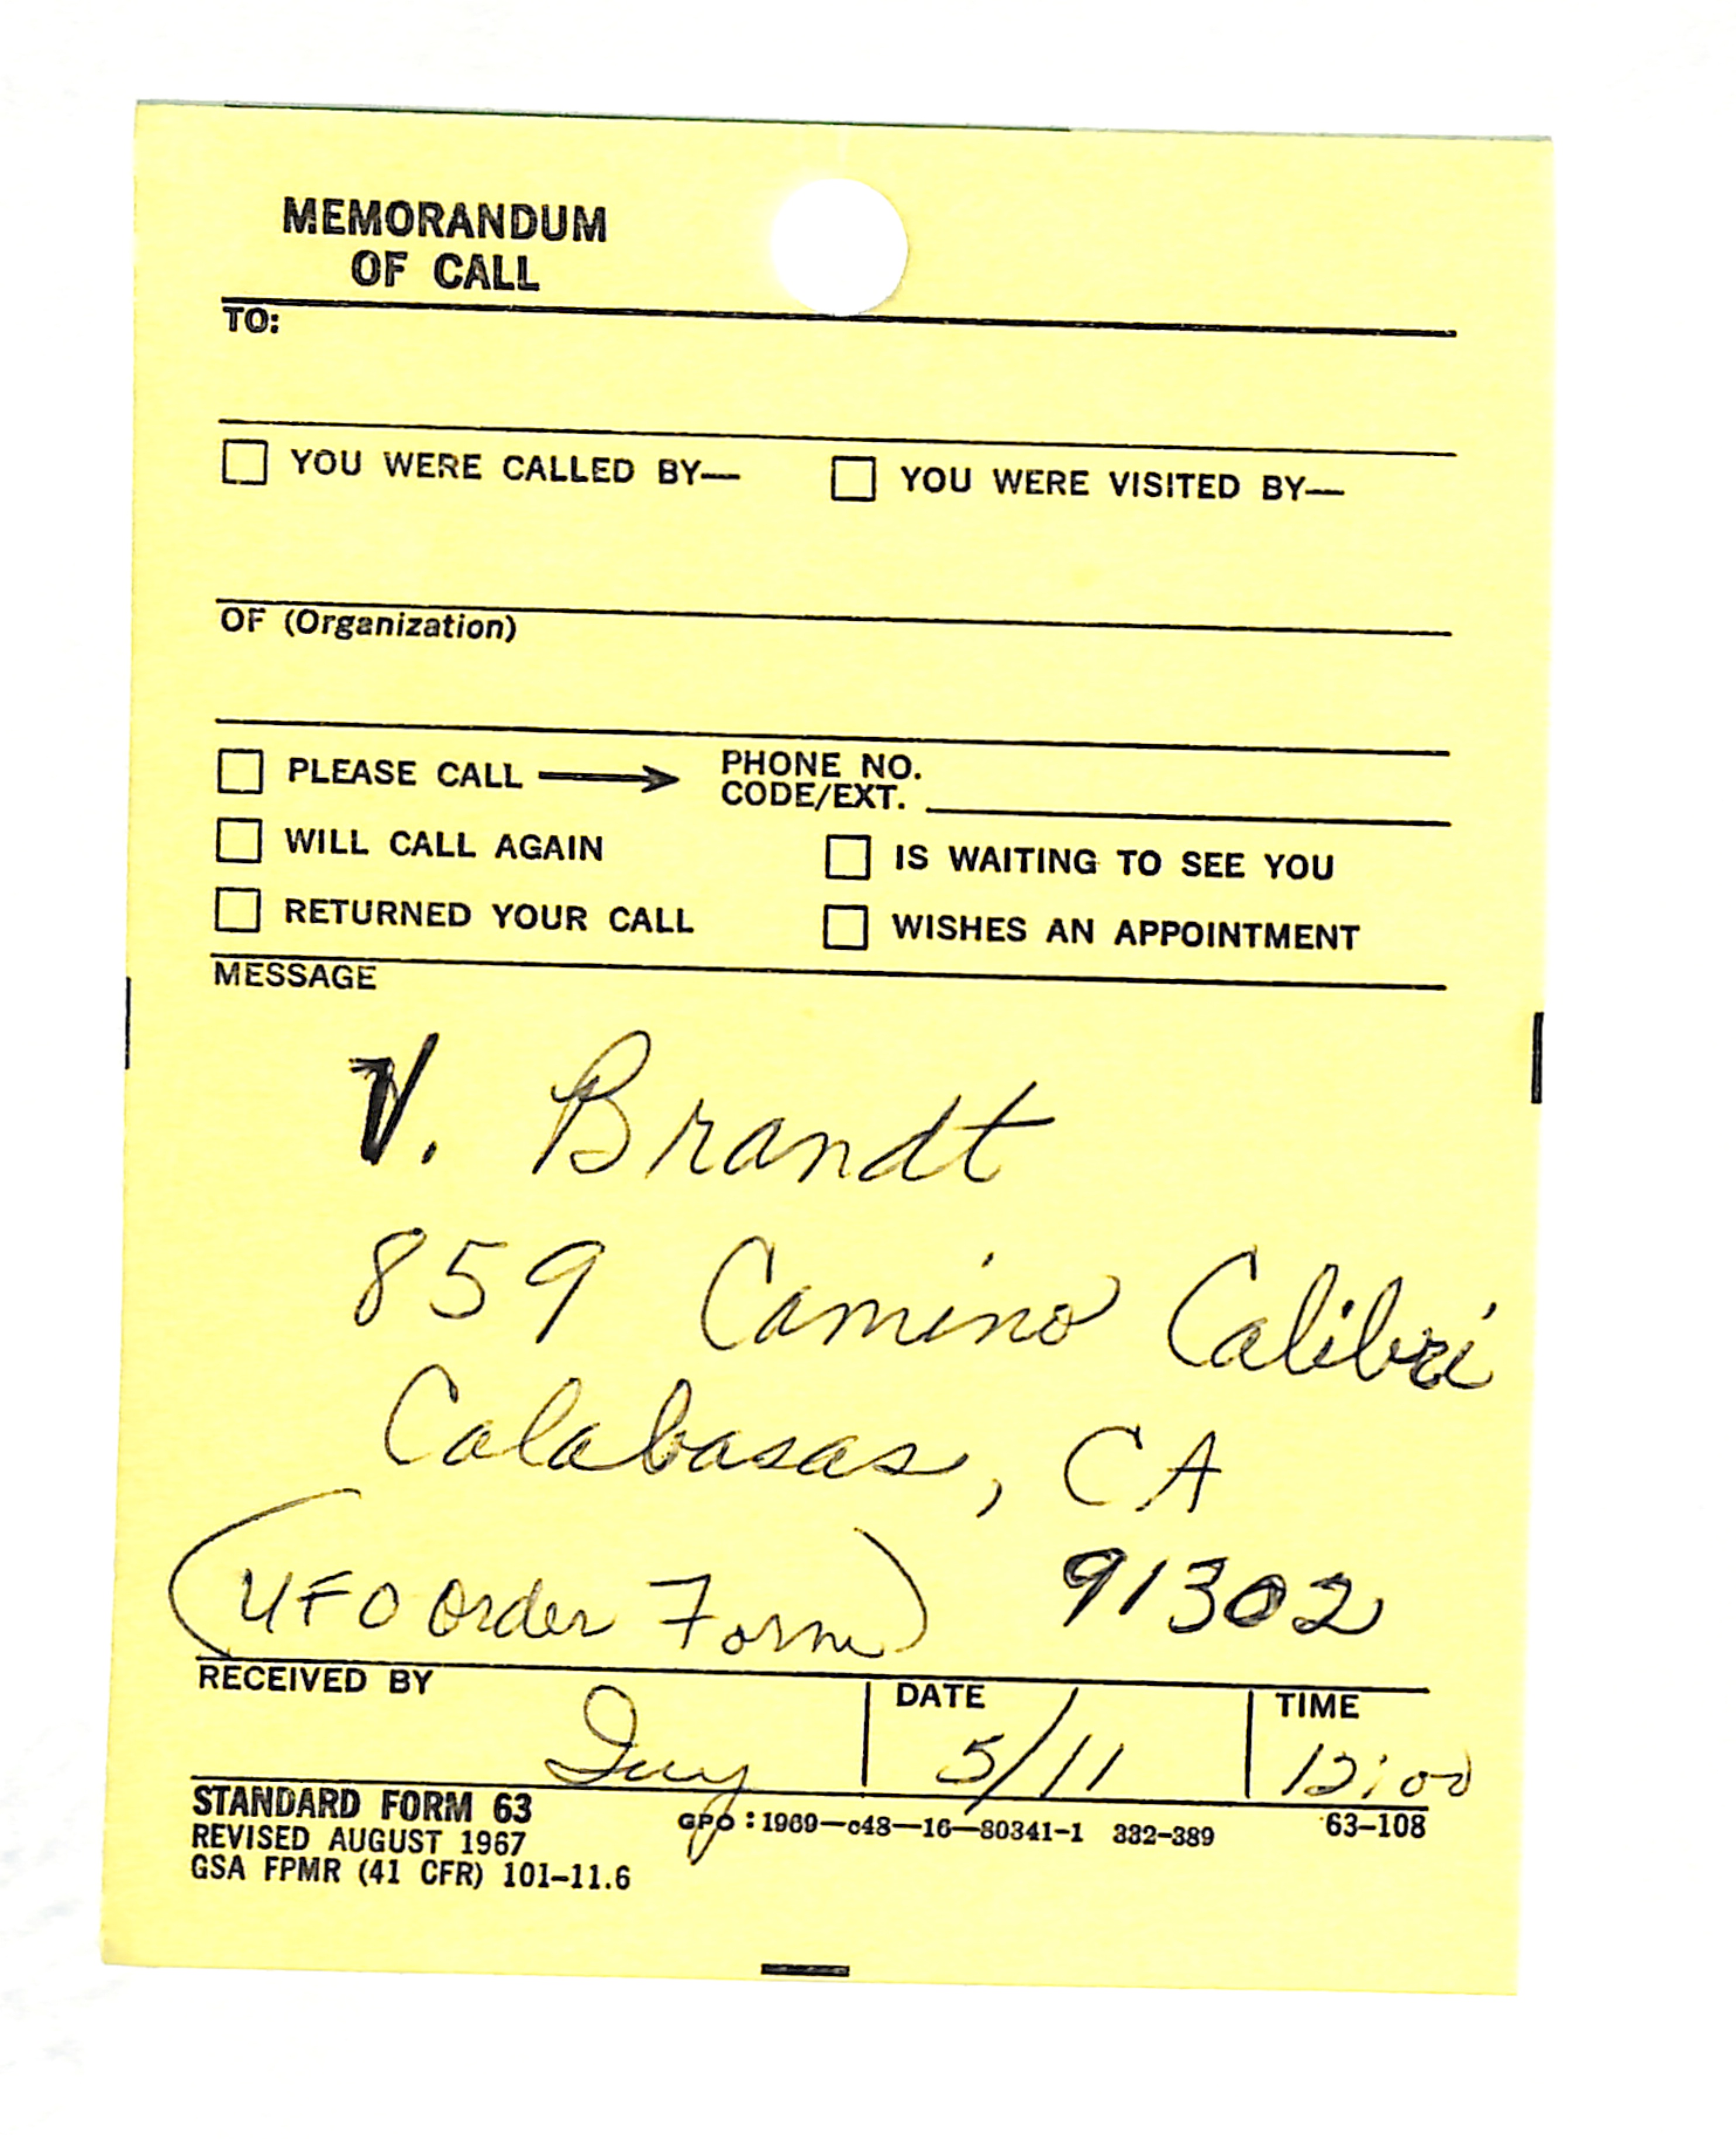 MEMORANDUM
OF CALL
TO:
YOU WERE CALLED BY— YOU WERE VISITED BY—
OF (Organization)
PLEASE CALL → PHONE NO.
CODE/EXT.
WILL CALL AGAIN IS WAITING TO SEE YOU
RETURNED YOUR CALL WISHES AN APPOINTMENT
MESSAGE
V. Brandt
859 Camino Calibri
Calabasas, CA
(UFO Order Form) 91302
RECEIVED BY DATE TIME
5/11 12:00
STANDARD FORM 63 GPO : 1969—c48—16—80341-1 332-389 63-108
REVISED AUGUST 1967
GSA FPMR (41 CFR) 101-11.6